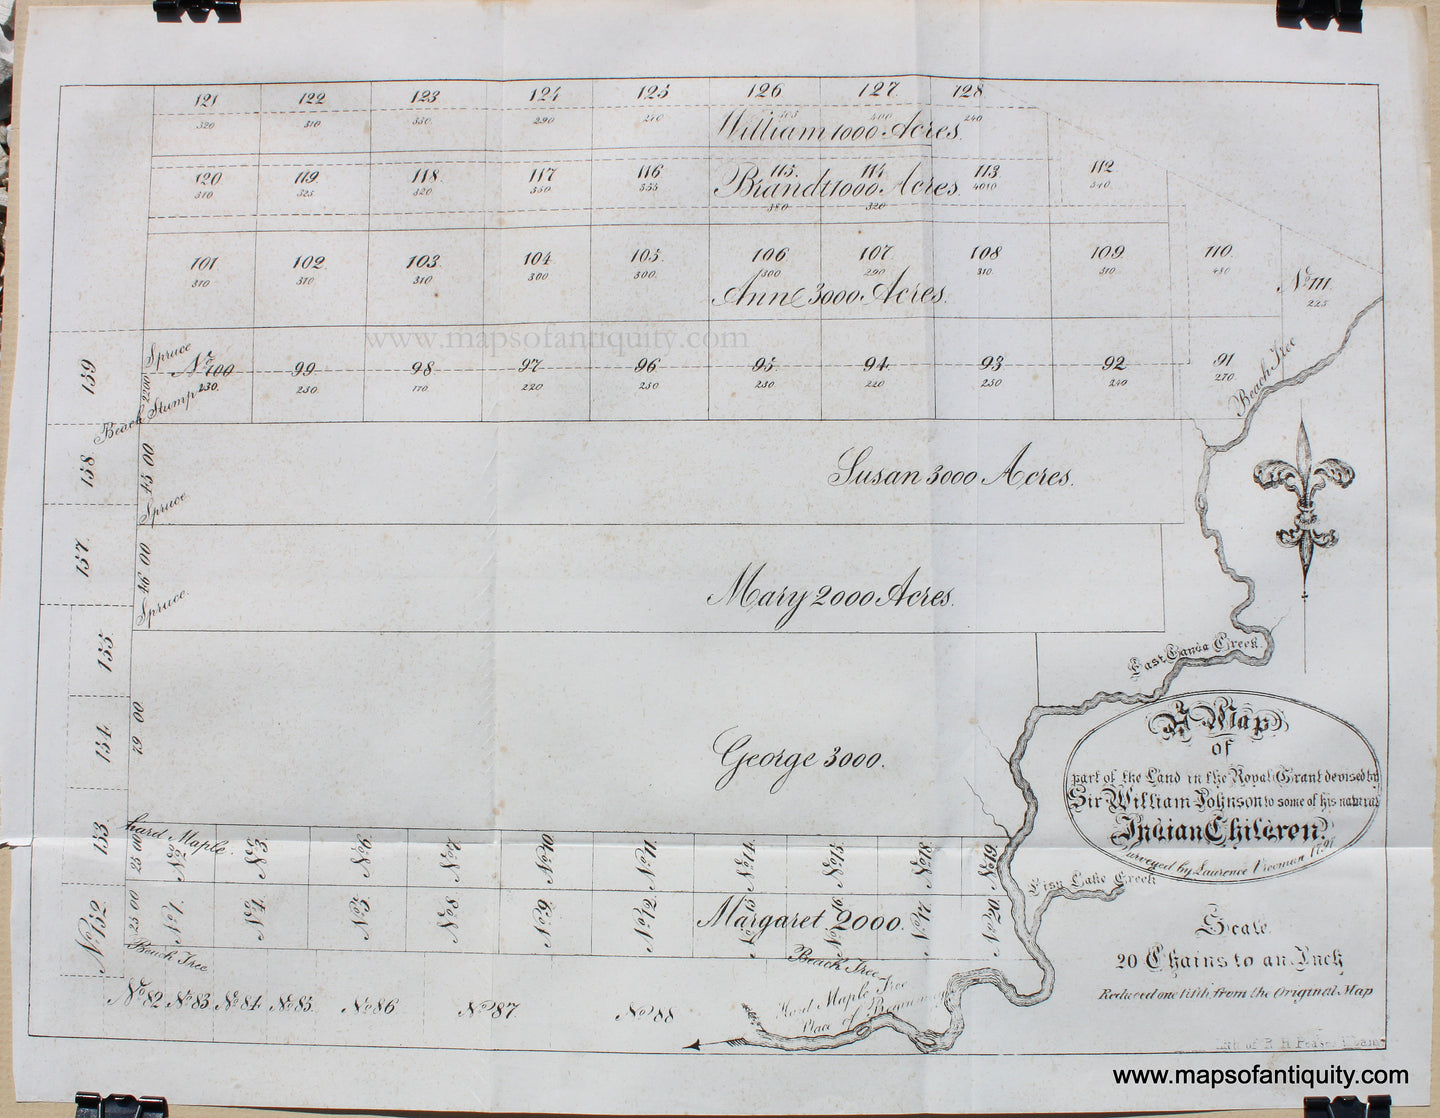 121 122 123 124 125 126 127 128
320 310 330 290 240 400 240
William 1000 Acres.
120 119 118 117 116 115. 114 113 112
310 325 320 350 355 4010 340
Brandt 1000 Acres
380 320
101 102 103 104 105. 106 107 108 109 110.
310 310 310 300 300. 300 290 310. 310 480
No 111
225
Ann 3000 Acres.
www.mapsofantiquity.com
159
Spruce
No 100 99 98 97 96 95 94 93 92 91
230. 250 170 220 250 250 220 250 240 270.
2200
Beach Stump
Beach Tree
158
45 00
Spruce
Susan 3000 Acres.
157
46 00
Spruce.
Mary 2000 Acres.
155
East Canda Creek.
154
79 00
George 3000.
A Map
of
part of the Land in the Royal Grant devised by
Sir William Johnson to some of his natural
Indian Children.
Surveyed by Laurence Vrooman 1791
153
hard Maple.
25 00
No 2 No 3. No 6. No 7. No 10 No 11. No 14 No 15. No 18 No 19
Fish Lake Creek
No 152
25 00
No 1. No 4. No 5 No 8 No 9. No 12. No 17 No 20
Margaret 2000.
Beach Tree
Beach Tree
Hard Maple Tree
Place of Beginning
No 82 No 83 No 84 No 85. No 86 No 87 No 88
Scale
20 Chains to an Inch
Reduced one fifth from the Original Map
Lith of R H Pease Albany
www.mapsofantiquity.com